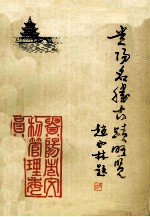 贵阳名胜古迹略览
赵西林题
贵阳市文物管理委员